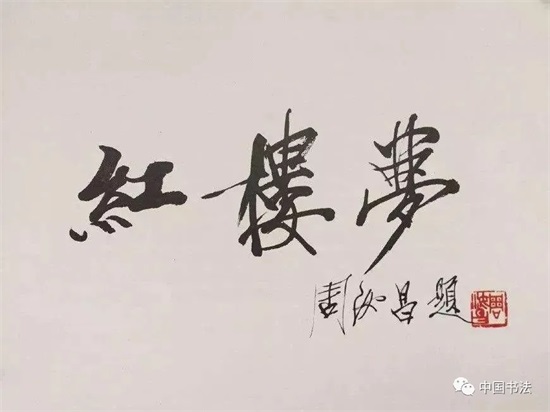 紅樓夢
周汝昌題
中国书法